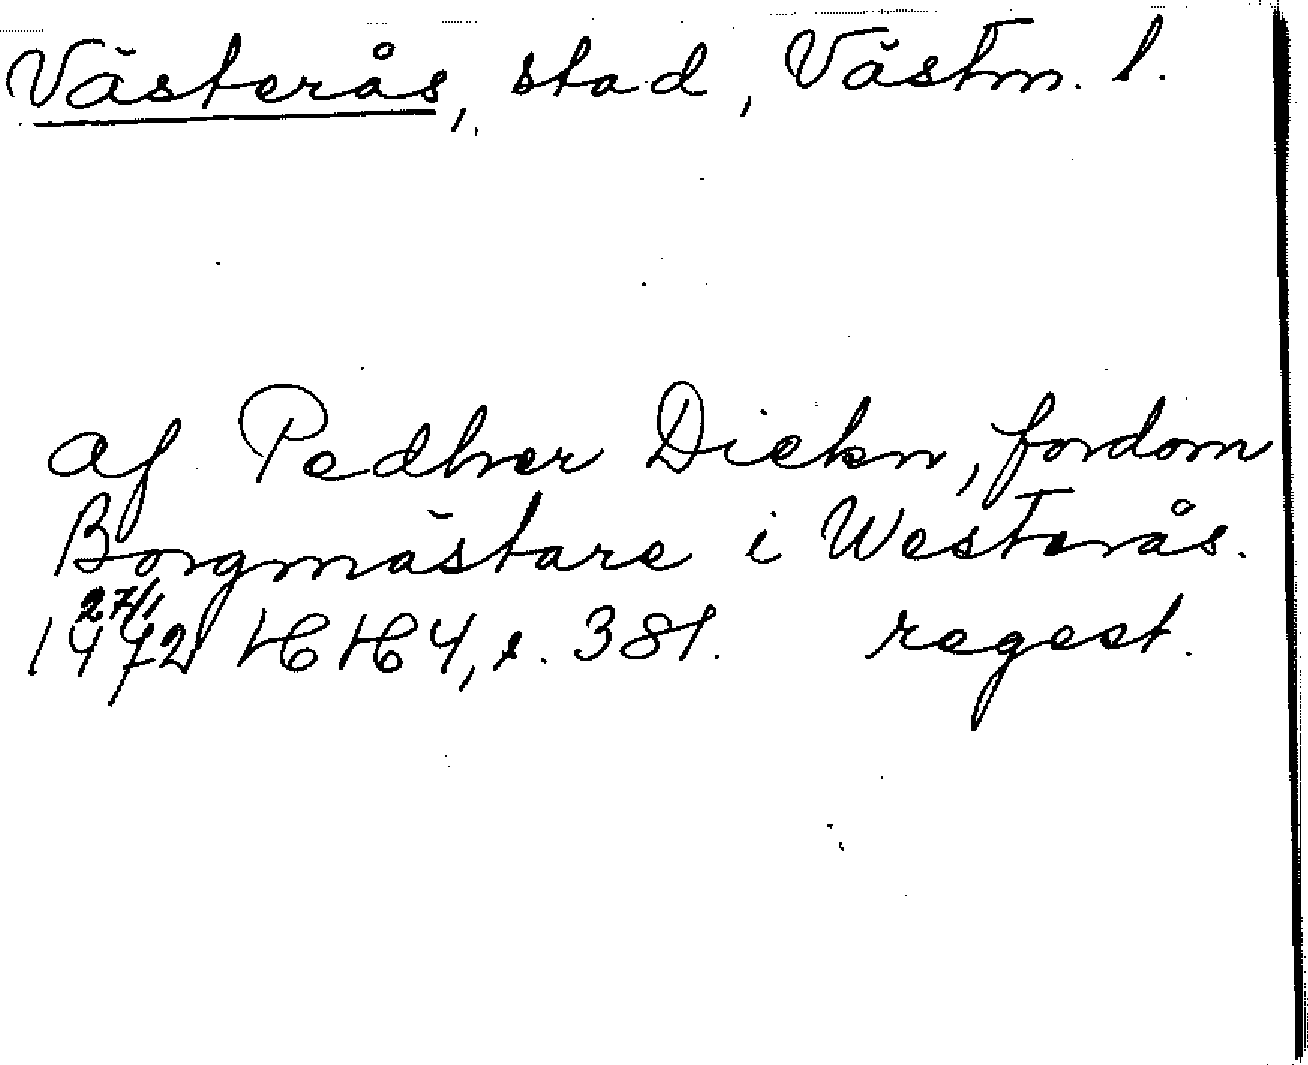 Västerås, stad, Västm. l.
af Pedher Diekn, fordom
Borgmästare i Westerås.
27/1
1472 HH 4, s. 381. regest.